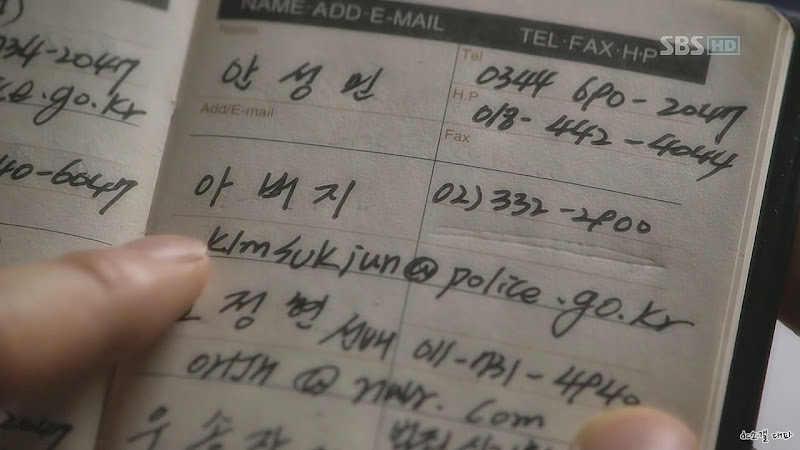 034-2047
ce.go.kr
40-6047
NAME·ADD·E-MAIL TEL·FAX·H.P
SBS HD
Name
안 성 민
Tel
0344 690-2047
H.P
018-442-4044
Add/E-mail
Fax
아 버 지 02) 332-2900
kimsukjun@police.go.kr
정 현 선배 011-731-4940
.com
우 송
대타